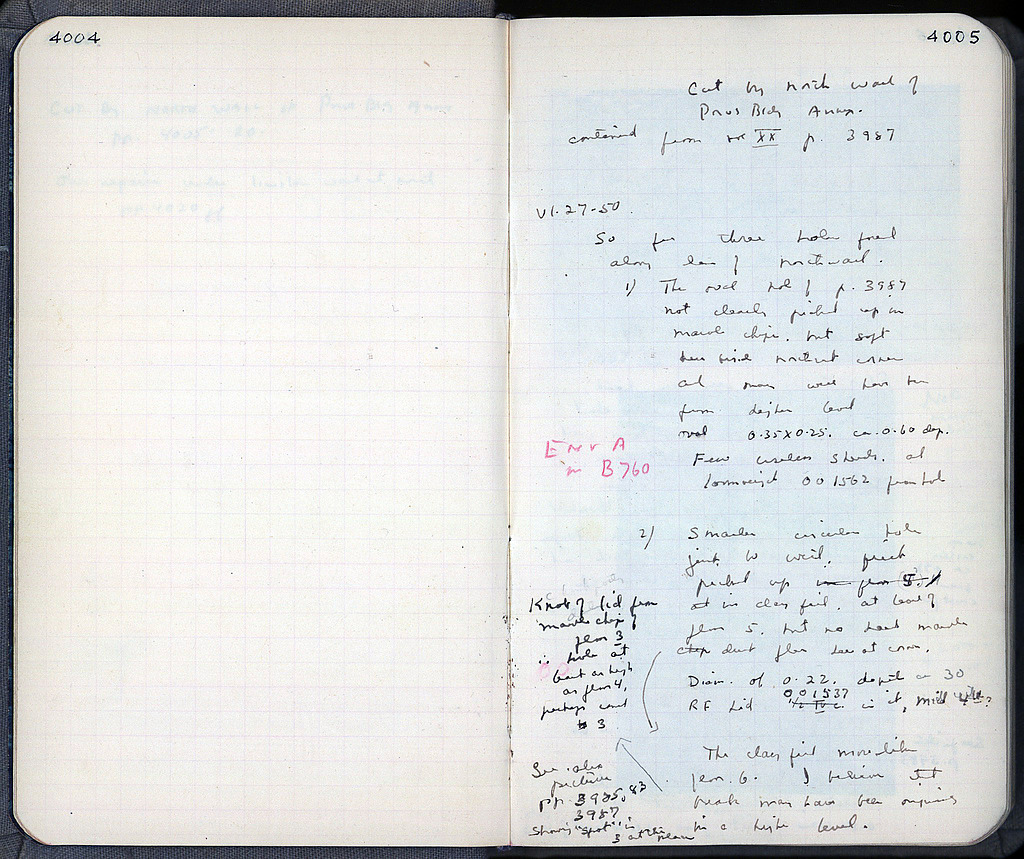 4004
4005
Cut by north wall of
Poros Bldg Annex.
continued from XX p. 3987
VI-27-50.
So far three holes found
along line of north wall.
1) The oval hole of p. 3987
not clearly picked up in
marble chips. but soft
here
and may well have been
from higher level
oval 0.35x0.25. ca. 0.60 deep.
Few useless sherds. and
loomweight 001562 from hole
Env A
in B760
2) Smaller circular hole
just to west. first
picked up in floor 5.
at in clay fill. at level of
floor 5. but no hard marble
chip dust floor here at corner.
Diam. of 0.22. depth ca 30
001537
RF Lid in it, Mid 4th?
Knob of lid from
marble chip of
floor 3
∴ hole at
least as high
as floor 4,
perhaps even
to 3
The clay fill more like
floor 6. I believe that
break may have been originally
in a higher level.
See also
picture
pp. 3985, 83
3987
showing "spot" in
3 at the place